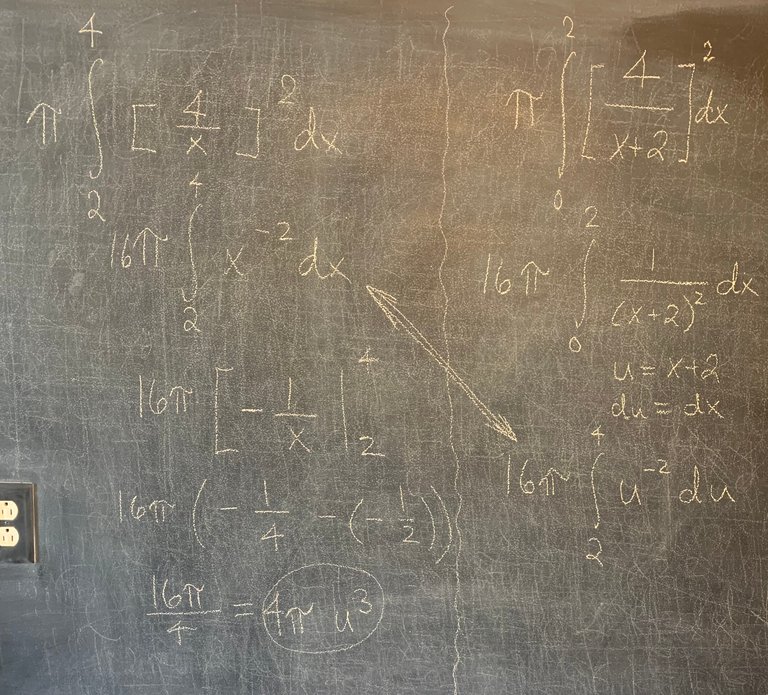 π ∫₂⁴ [4/x]² dx
16π ∫₂⁴ x⁻² dx
16π [-1/x |₂⁴
16π (-1/4 - (-1/2))
16π/4 = 4π u³
π ∫₀² [4/(x+2)]² dx
16π ∫₀² 1/(x+2)² dx
u = x+2
du = dx
16π ∫₂⁴ u⁻² du